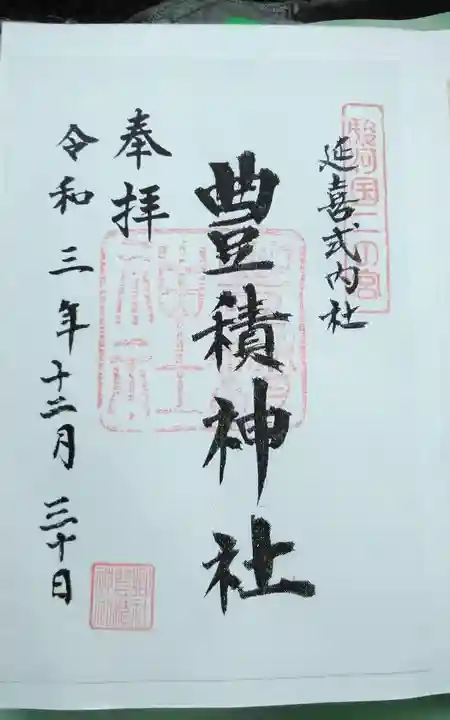 駿河国二の宮
延喜式内社
豊積神社
奉拝
令和三年十二月三十日